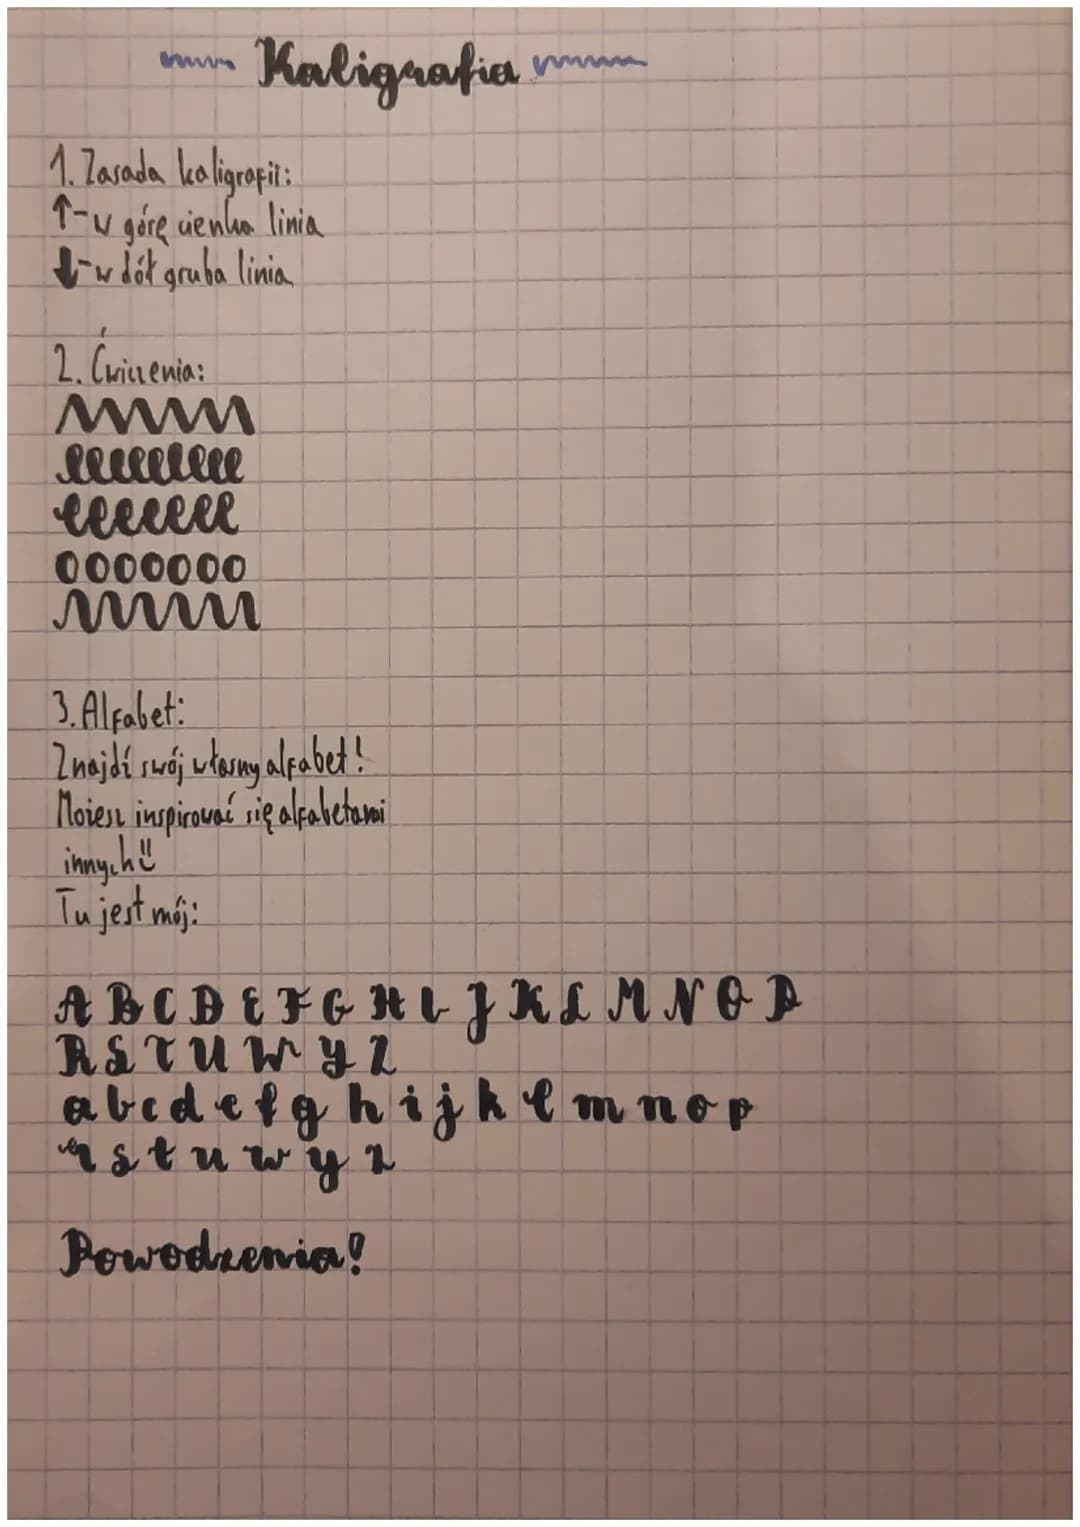 Kaligrafia
1. Zasada kaligrafii:
↑-w górę cienka linia
↓-w dół gruba linia
2. Ćwiczenia:
eeeeeeeee
eeeeeee
ooooooo
3. Alfabet:
Znajdź swój własny alfabet!
Możesz inspirować się alfabetami
innych
Tu jest mój:
A B C D E F G H I J K L M N O P
R S T U W Y Z
a b c d e f g h i j k l m n o p
r s t u w y z
Powodzenia!